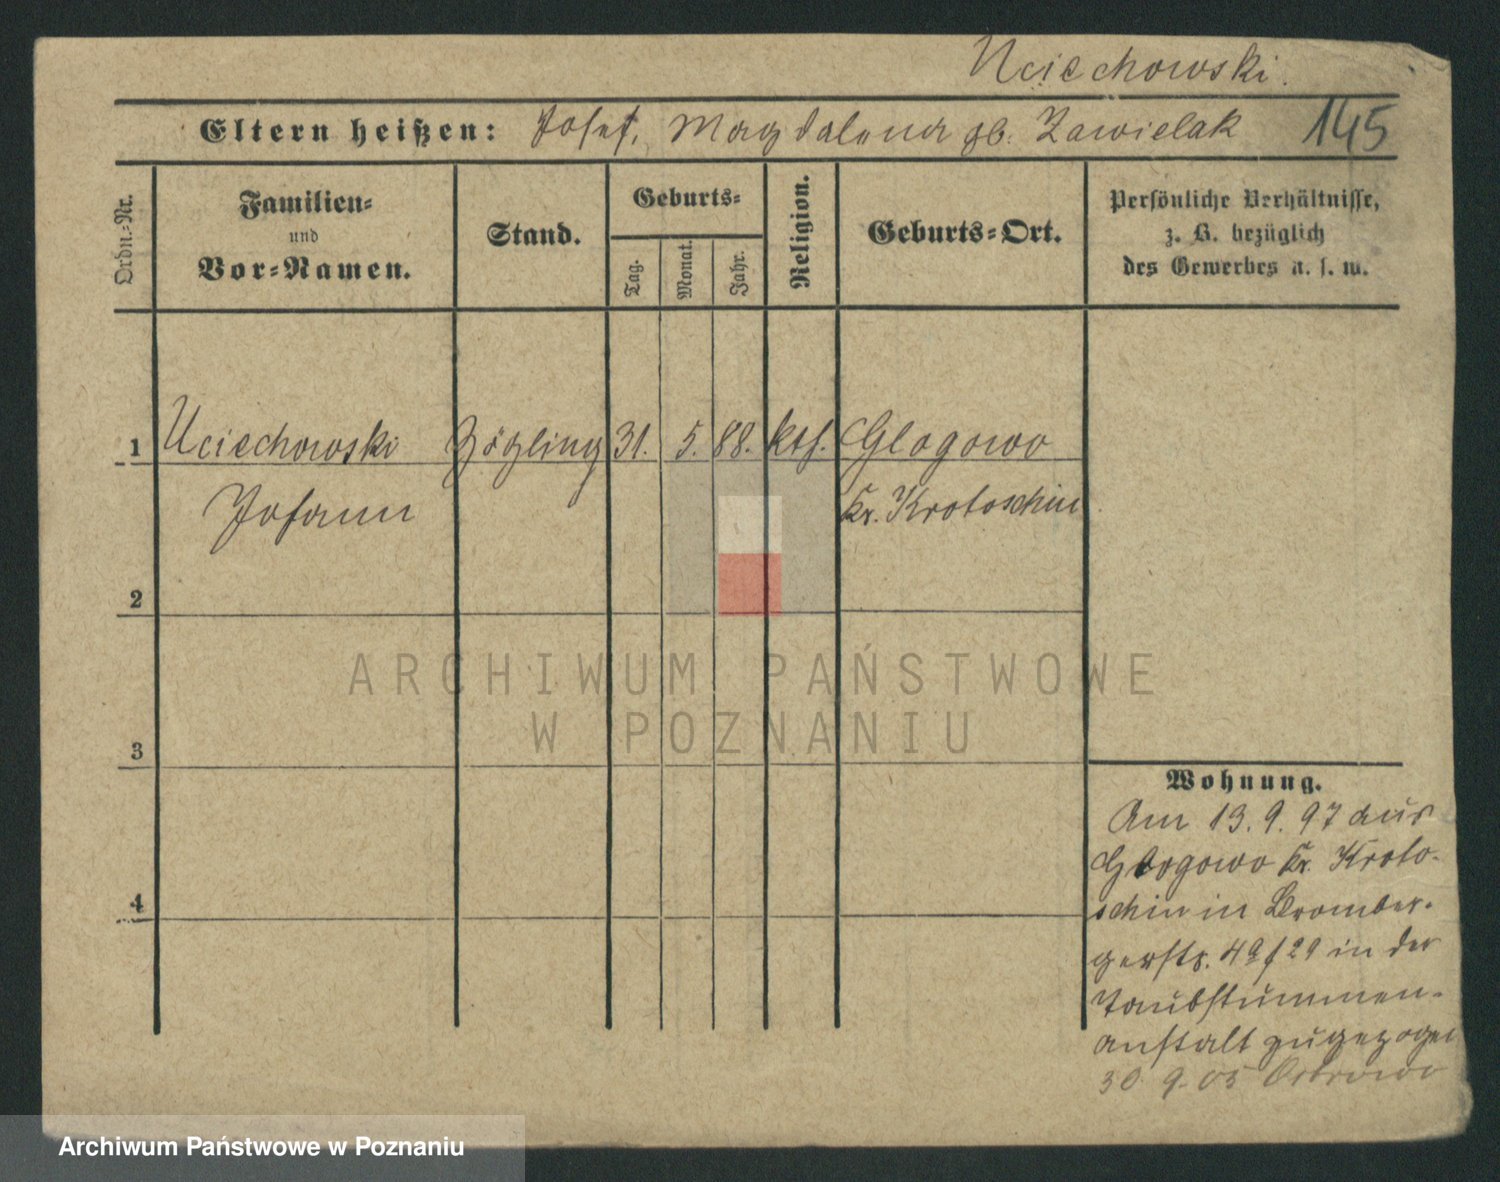 Uciechowski.
Eltern heißen: Josef, Magdalena gb. Zawielak 145
Ordn.-Nr.
Familien-
und
Vor-Namen.
Stand.
Geburts-
Tag.
Monat.
Jahr.
Religion.
Geburts-Ort.
Persönliche Verhältnisse,
z. B. bezüglich
des Gewerbes u. s. w.
1 Uciechowski Zögling 31. 5. 88. kth. Glogowo
Johann Kr. Krotoschin
2
3
4
Wohnung.
Am 13. 9. 97 aus
Glogowo Kr. Kroto-
schin in Bromber-
gerstr. 4a/29 in der
Taubstummen-
anstalt zugezogen
30 9. 05 Ostrowo
ARCHIWUM PAŃSTWOWE
W POZNANIU
Archiwum Państwowe w Poznaniu